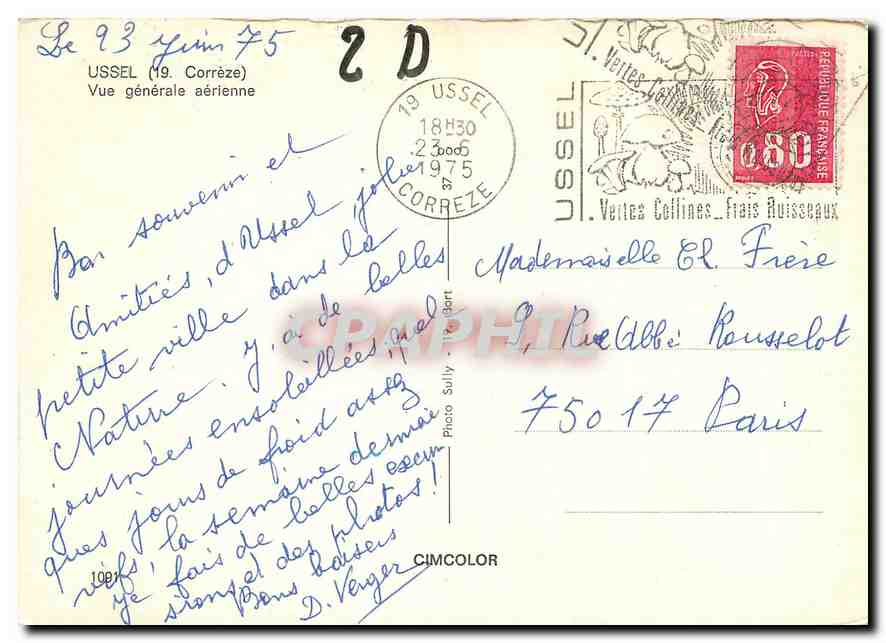 Le 23 Juin 75
2 D
USSEL (19. Corrèze)
Vue générale aérienne
19 USSEL
18H30
23-6
1975
37
CORREZE
USSEL
Vertes Collines_Frais Ruisseaux
U
Vertes Collines
REPUBLIQUE FRANÇAISE
0,80
Bon souvenir et
Amitiés, d'Ussel jolie
petite ville dans la
Nature. Y, a de belles
journées ensoleillées, quel
ques jours de froid assez
vifs, la semaine dernière
je fais de belles excur
sions et des photos!
Bons baisers
D. Verger
1091
CIMCOLOR
Photo Sully - 19 - Bort
CPAPHIL
Mademoiselle Cl. Frère
9, Rue Abbé Rousselot
75017 Paris